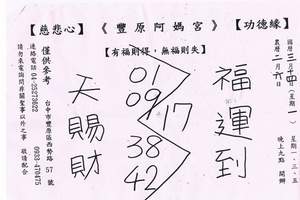 【慈悲心】《豐原阿媽宮》【功德緣】
【有福則得，無福則失】
國曆三月十四日（星期一）
農曆二月六日
星期一．三．五
晚上九點 開辦
福運到
01
09
17
38
42
天賜財
僅供參考
台中市豐原區西勢路 57 號
連絡電話 04-25273622
0933-470475
請勿來電詢問非關聖事以外之事 敬請配合